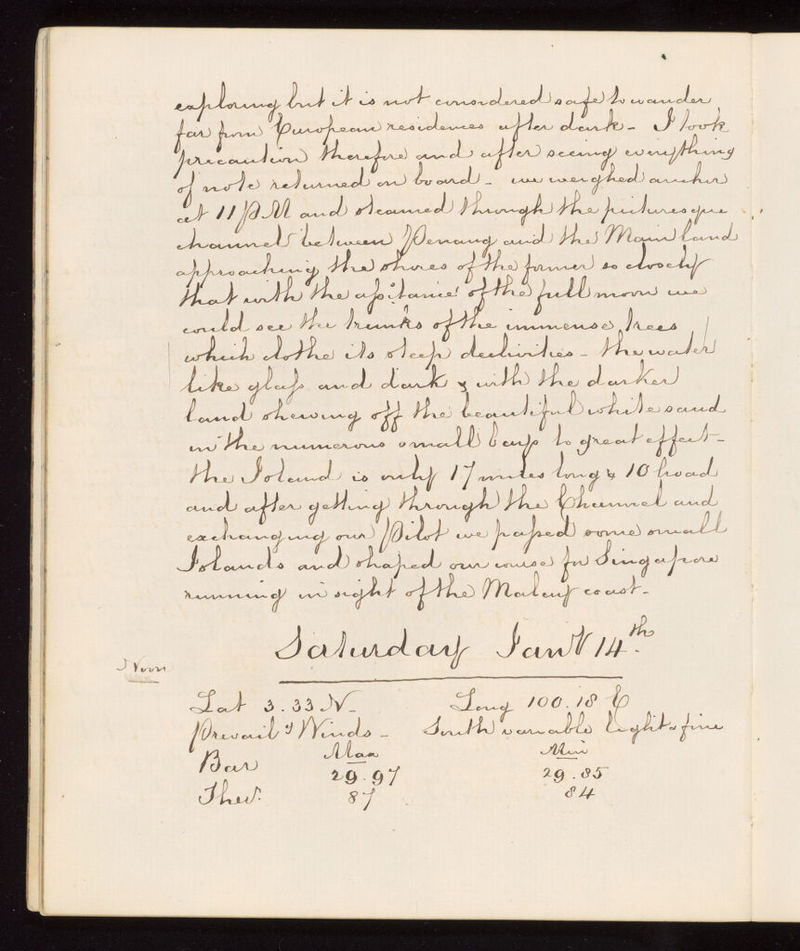 exploring but it is not considered safe to wander
far from European residences after dark - I took
precaution therefore and after seeing everything
of note returned on board - we weighed anchor
at 11 PM and steamed through the picturesque
channel between Penang and the Main land
approaching the shores of the former so closely
that with the assitance of the full moon we
could see the trunks of the immense trees
which clothe its steep declivities - the water
like glass and dark & with the darker
land shewing off the beautiful white sand
in the numerous small bays to great effect -
the Island is only 17 miles long & 10 broad
and after getting through the Channel and
exchanging our Pilot we passed some small
Islands and shaped our course for Singapore
running in sight of the Malay coast -
Saturday Jany 14th.
Noon
Lat 3.33 N - Long 100.18 E
Prevailg Winds - South variable light & fine
Max Min
Bar 29.97 29.85
Ther. 87 84